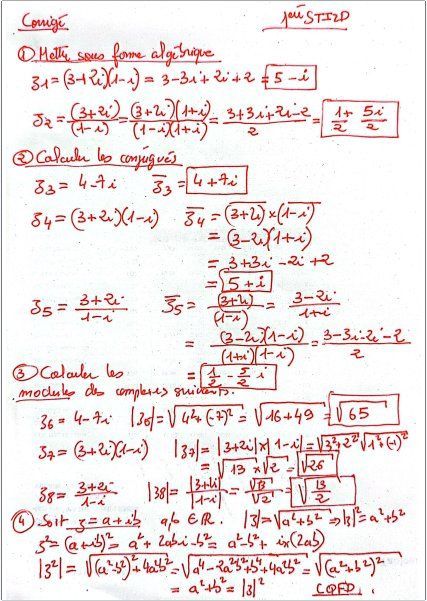 Corrigé 1ère STI2D
① Mettre sous forme algébrique
z1 = (3+2i)(1-i) = 3-3i+2i+2 = 5-i
z2 = (3+2i)/(1-i) = (3+2i)(1+i)/(1-i)(1+i) = (3+3i+2i-2)/2 = 1/2 + 5i/2
② Calculer les conjugués
z3 = 4-7i z̅3 = 4+7i
z4 = (3+2i)(1-i) z̅4 = (3+2i)‾ × (1-i)‾
= (3-2i)(1+i)
= 3+3i-2i+2
= 5+i
z5 = (3+2i)/(1-i) z̅5 = (3+2i)‾/(1-i)‾ = (3-2i)/(1+i)
= (3-2i)(1-i)/(1+i)(1-i) = (3-3i-2i-2)/2
= 1/2 - 5/2 i
③ Calculer les
modules des complexes suivants.
z6 = 4-7i |z6| = √(4²+(-7)²) = √(16+49) = √65
z7 = (3+2i)(1-i) |z7| = |3+2i|×|1-i| = √(3²+2²) √(1²+(-1)²)
= √13 × √2 = √26
z8 = (3+2i)/(1-i) |z8| = |3+2i|/|1-i| = √13/√2 = √(13/2)
④ Soit z = a+ib a,b ∈ ℝ. |z| = √(a²+b²) ⇒ |z|² = a²+b²
z² = (a+ib)² = a²+2abi-b² = a²-b² + i×(2ab)
|z²| = √((a²-b²)²+4a²b²) = √(a⁴-2a²b²+b⁴+4a²b²) = √((a²+b²)²)
= a²+b² = |z|² CQFD.